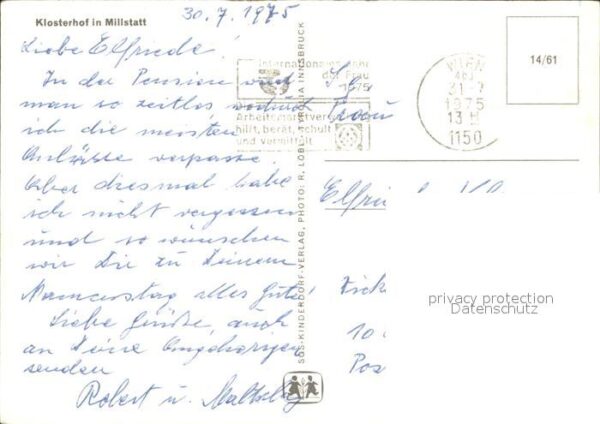 Klosterhof in Millstatt
30.7.1975
Liebe Elfriede!
In der Pension wird
man so zeitlos wodurch
ich die meisten
Anlässe verpasse.
Aber diesmal habe
ich nicht vergessen
und so wünschen
wir Dir zu Deinem
Namenstag alles Gute!
Liebe Grüße, auch
an Deine Angehörigen
senden
Robert u.
Internationales Jahr
der Frau
1975
Arbeitsmarktverw
hilft, berät, schult
und vermittelt
WIEN
31.-7
1975
13
1150
14/61
SOS-KINDERDORF-VERLAG, PHOTO: R. LÖBL, TYROLIA INNSBRUCK
Frau
Elfri
10
Pos
privacy protection
Datenschutz